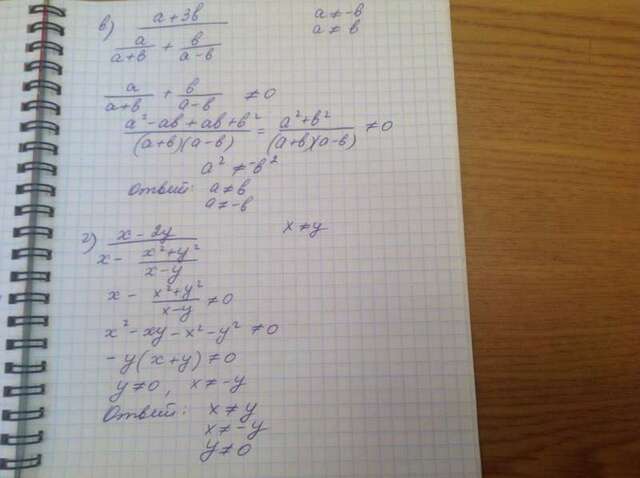 в) (a + 3в) / (a/(a+в) + в/(a−в))    a ≠ −в
a ≠ в
a/(a+в) + в/(a−в) ≠ 0
(a² − aв + aв + в²)/((a+в)(a−в)) = (a² + в²)/((a+в)(a−в)) ≠ 0
a² ≠ −в²
Ответ: a ≠ в
a ≠ −в
г) (x − 2y) / (x − (x²+y²)/(x−y))    x ≠ y
x − (x²+y²)/(x−y) ≠ 0
x² − xy − x² − y² ≠ 0
−y(x+y) ≠ 0
y ≠ 0, x ≠ −y
Ответ: x ≠ y
x ≠ −y
y ≠ 0